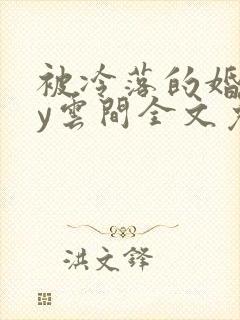 被冷落的婚
y雲間全文免
洪文鋒